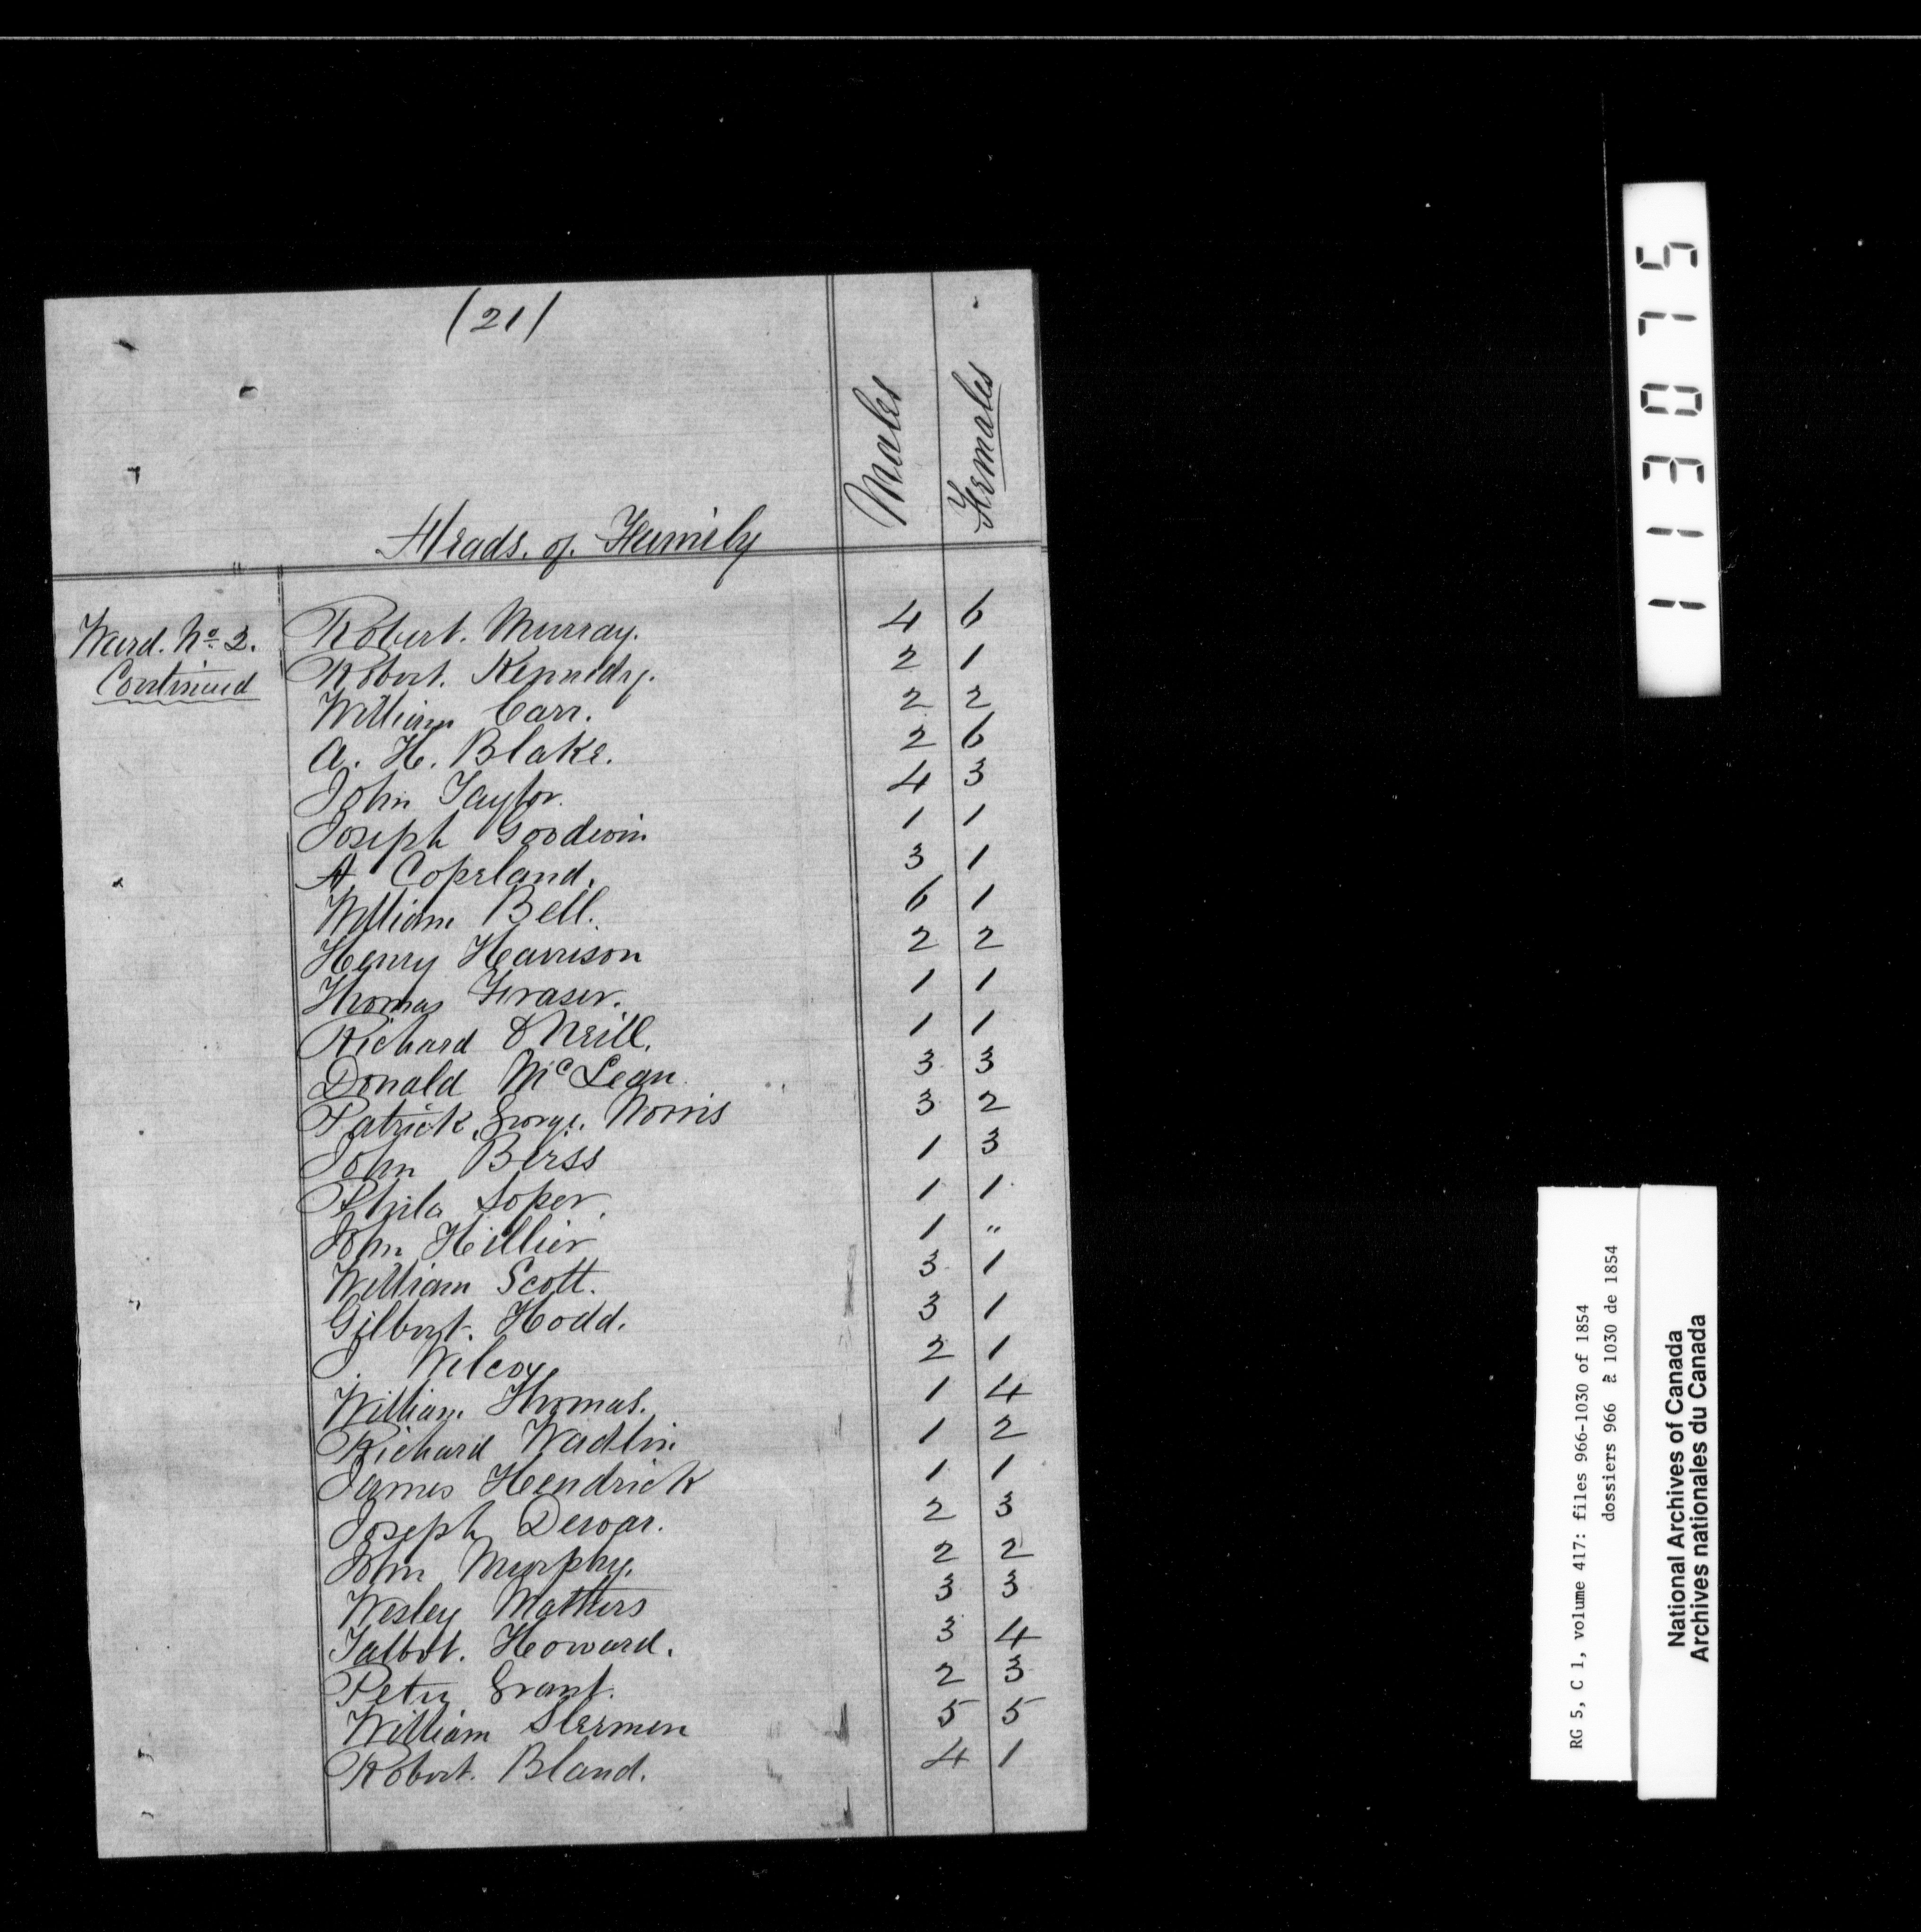 (21)
Heads. of. Family Males Females
Ward. No. 2. Robert. Murray. 4 6
Continued Robert. Kennedy. 2 1
William Carr. 2 2
A. H. Blake. 2 6
John Taylor. 4 3
Joseph Goodwin 1 1
A Copeland. 3 1
William Bell. 6 1
Henry Harrison 2 2
Thomas Fraser. 1 1
Richard O'Neill. 1 1
Donald McLean 3 3
Patrick, George. Norris 3 2
John Berss 1 3
Phila Soper. 1 1
John Hillier 1 "
William Scott. 3 1
Gilbert. Hodd. 3 1
J. Wilcox 2 1
William Thomas. 1 4
Richard Wadlin 1 2
James Hendrick 1 1
Joseph Dewar. 2 3
John Murphy. 2 2
Wesley Mathers 3 3
Talbot. Howard. 3 4
Peter Grant. 2 3
William 5 5
Robert. Bland. 4 1
113075
RG 5, C 1, volume 417: files 966-1030 of 1854
dossiers 966 à 1030 de 1854
National Archives of Canada
Archives nationales du Canada